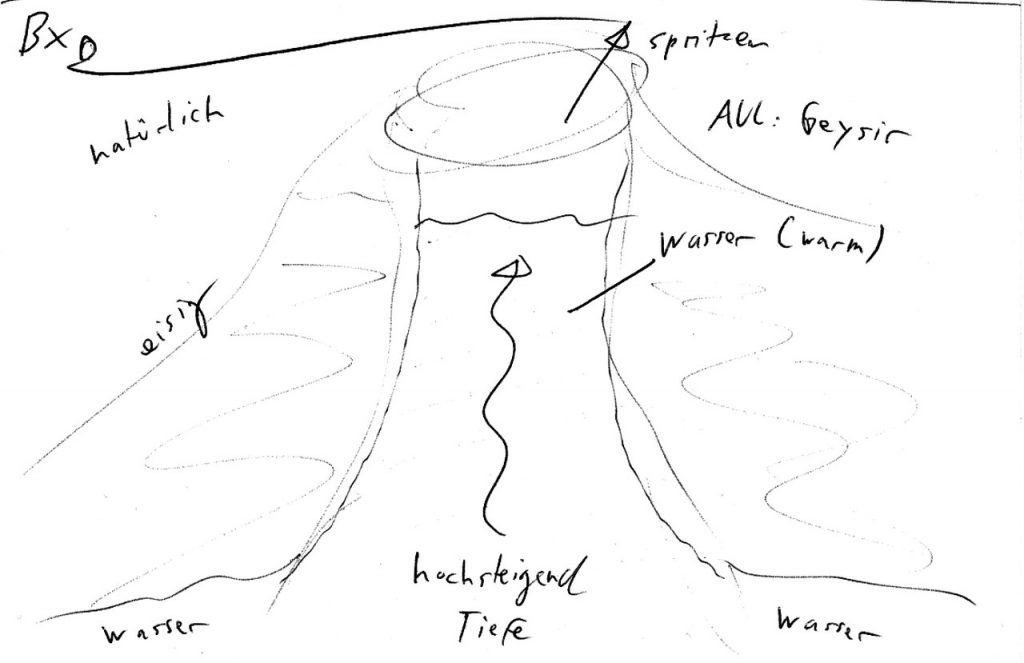 spritzen
natürlich
AUL: Geysir
Wasser (warm)
eisig
hochsteigend
Tiefe
Wasser
Wasser